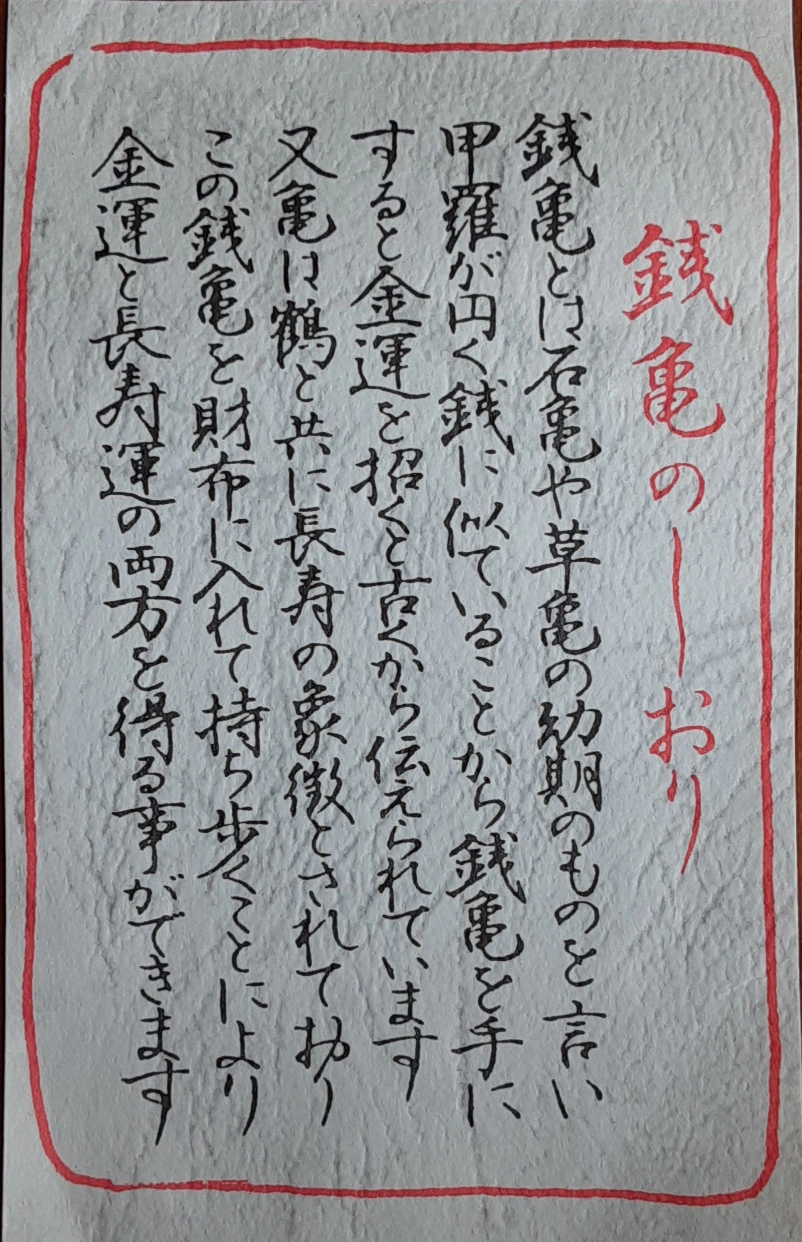 銭亀のしおり
銭亀とは石亀や草亀の幼期のものを言い
甲羅が円く銭に似ていることから銭亀を手に
すると金運を招くと古くから伝えられています
又亀は鶴と共に長寿の象徴とされており
この銭亀を財布に入れて持ち歩くことにより
金運と長寿運の両方を得る事ができます